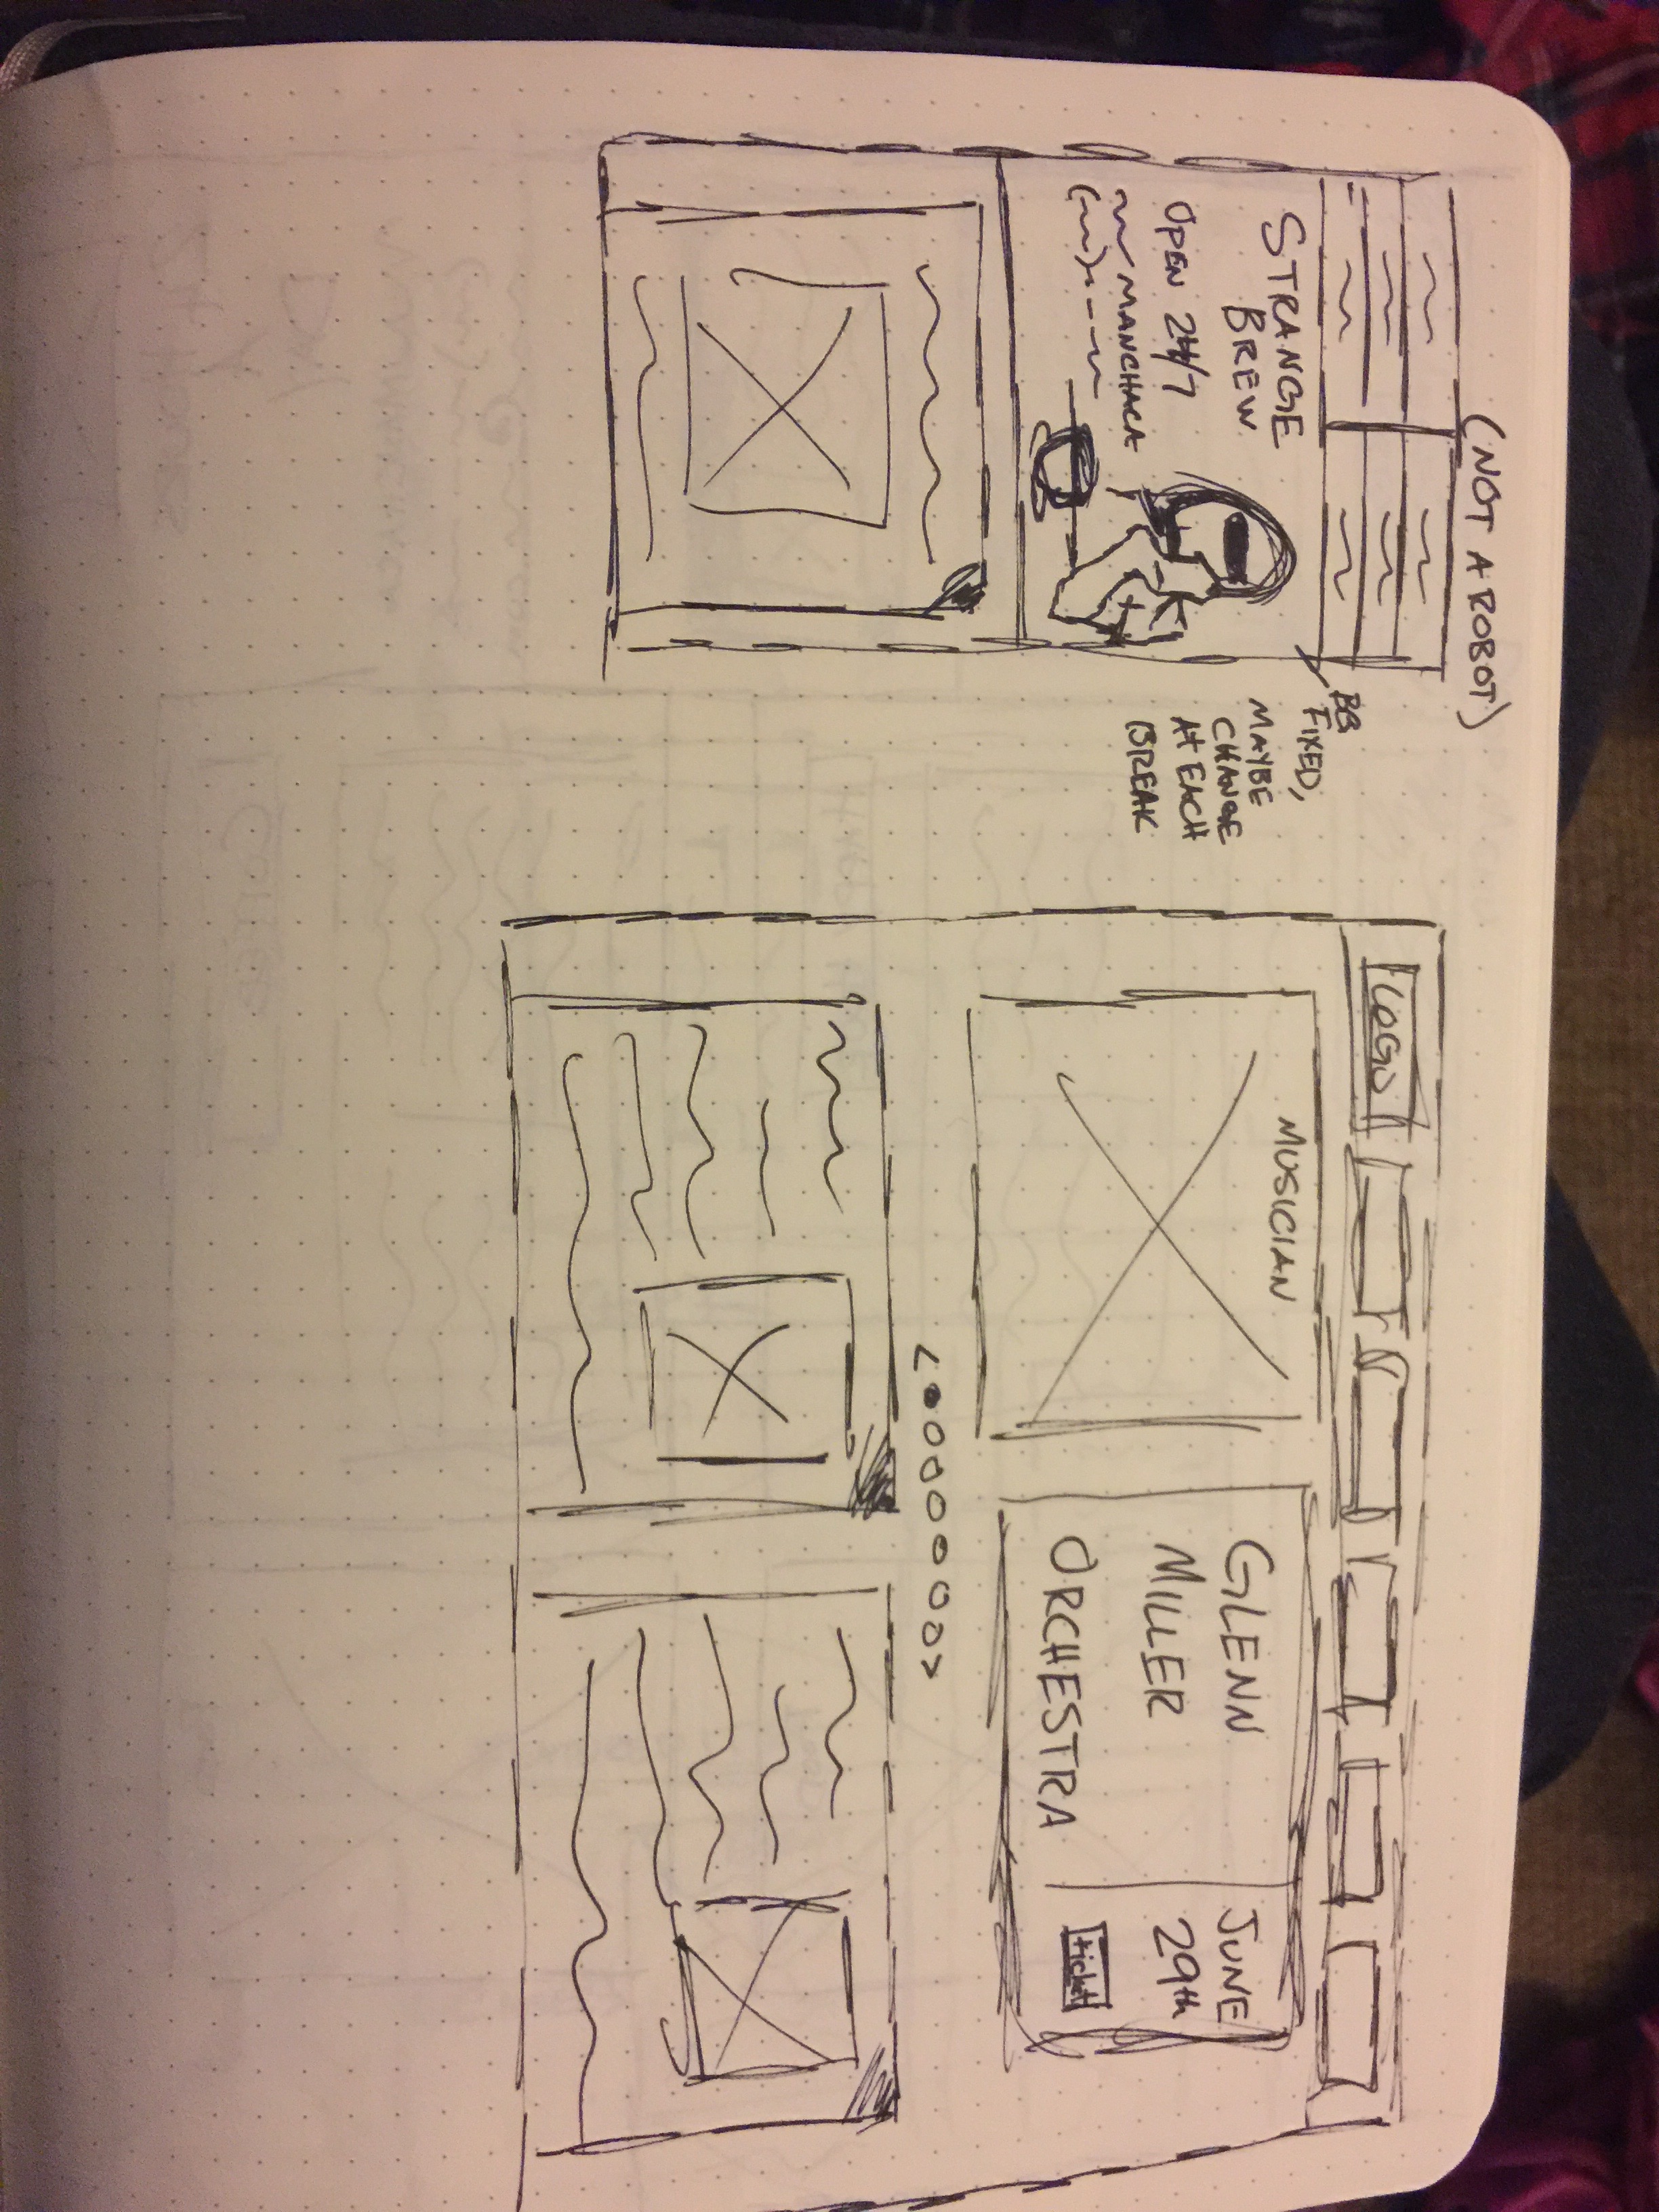 (NOT A ROBOT)
STRANGE
BREW
OPEN 24/7
MANCHACA
BG
FIXED,
MAYBE
CHANGE
AT EACH
BREAK
LOGO
MUSICIAN
GLENN
MILLER
ORCHESTRA
JUNE
29th
ticket